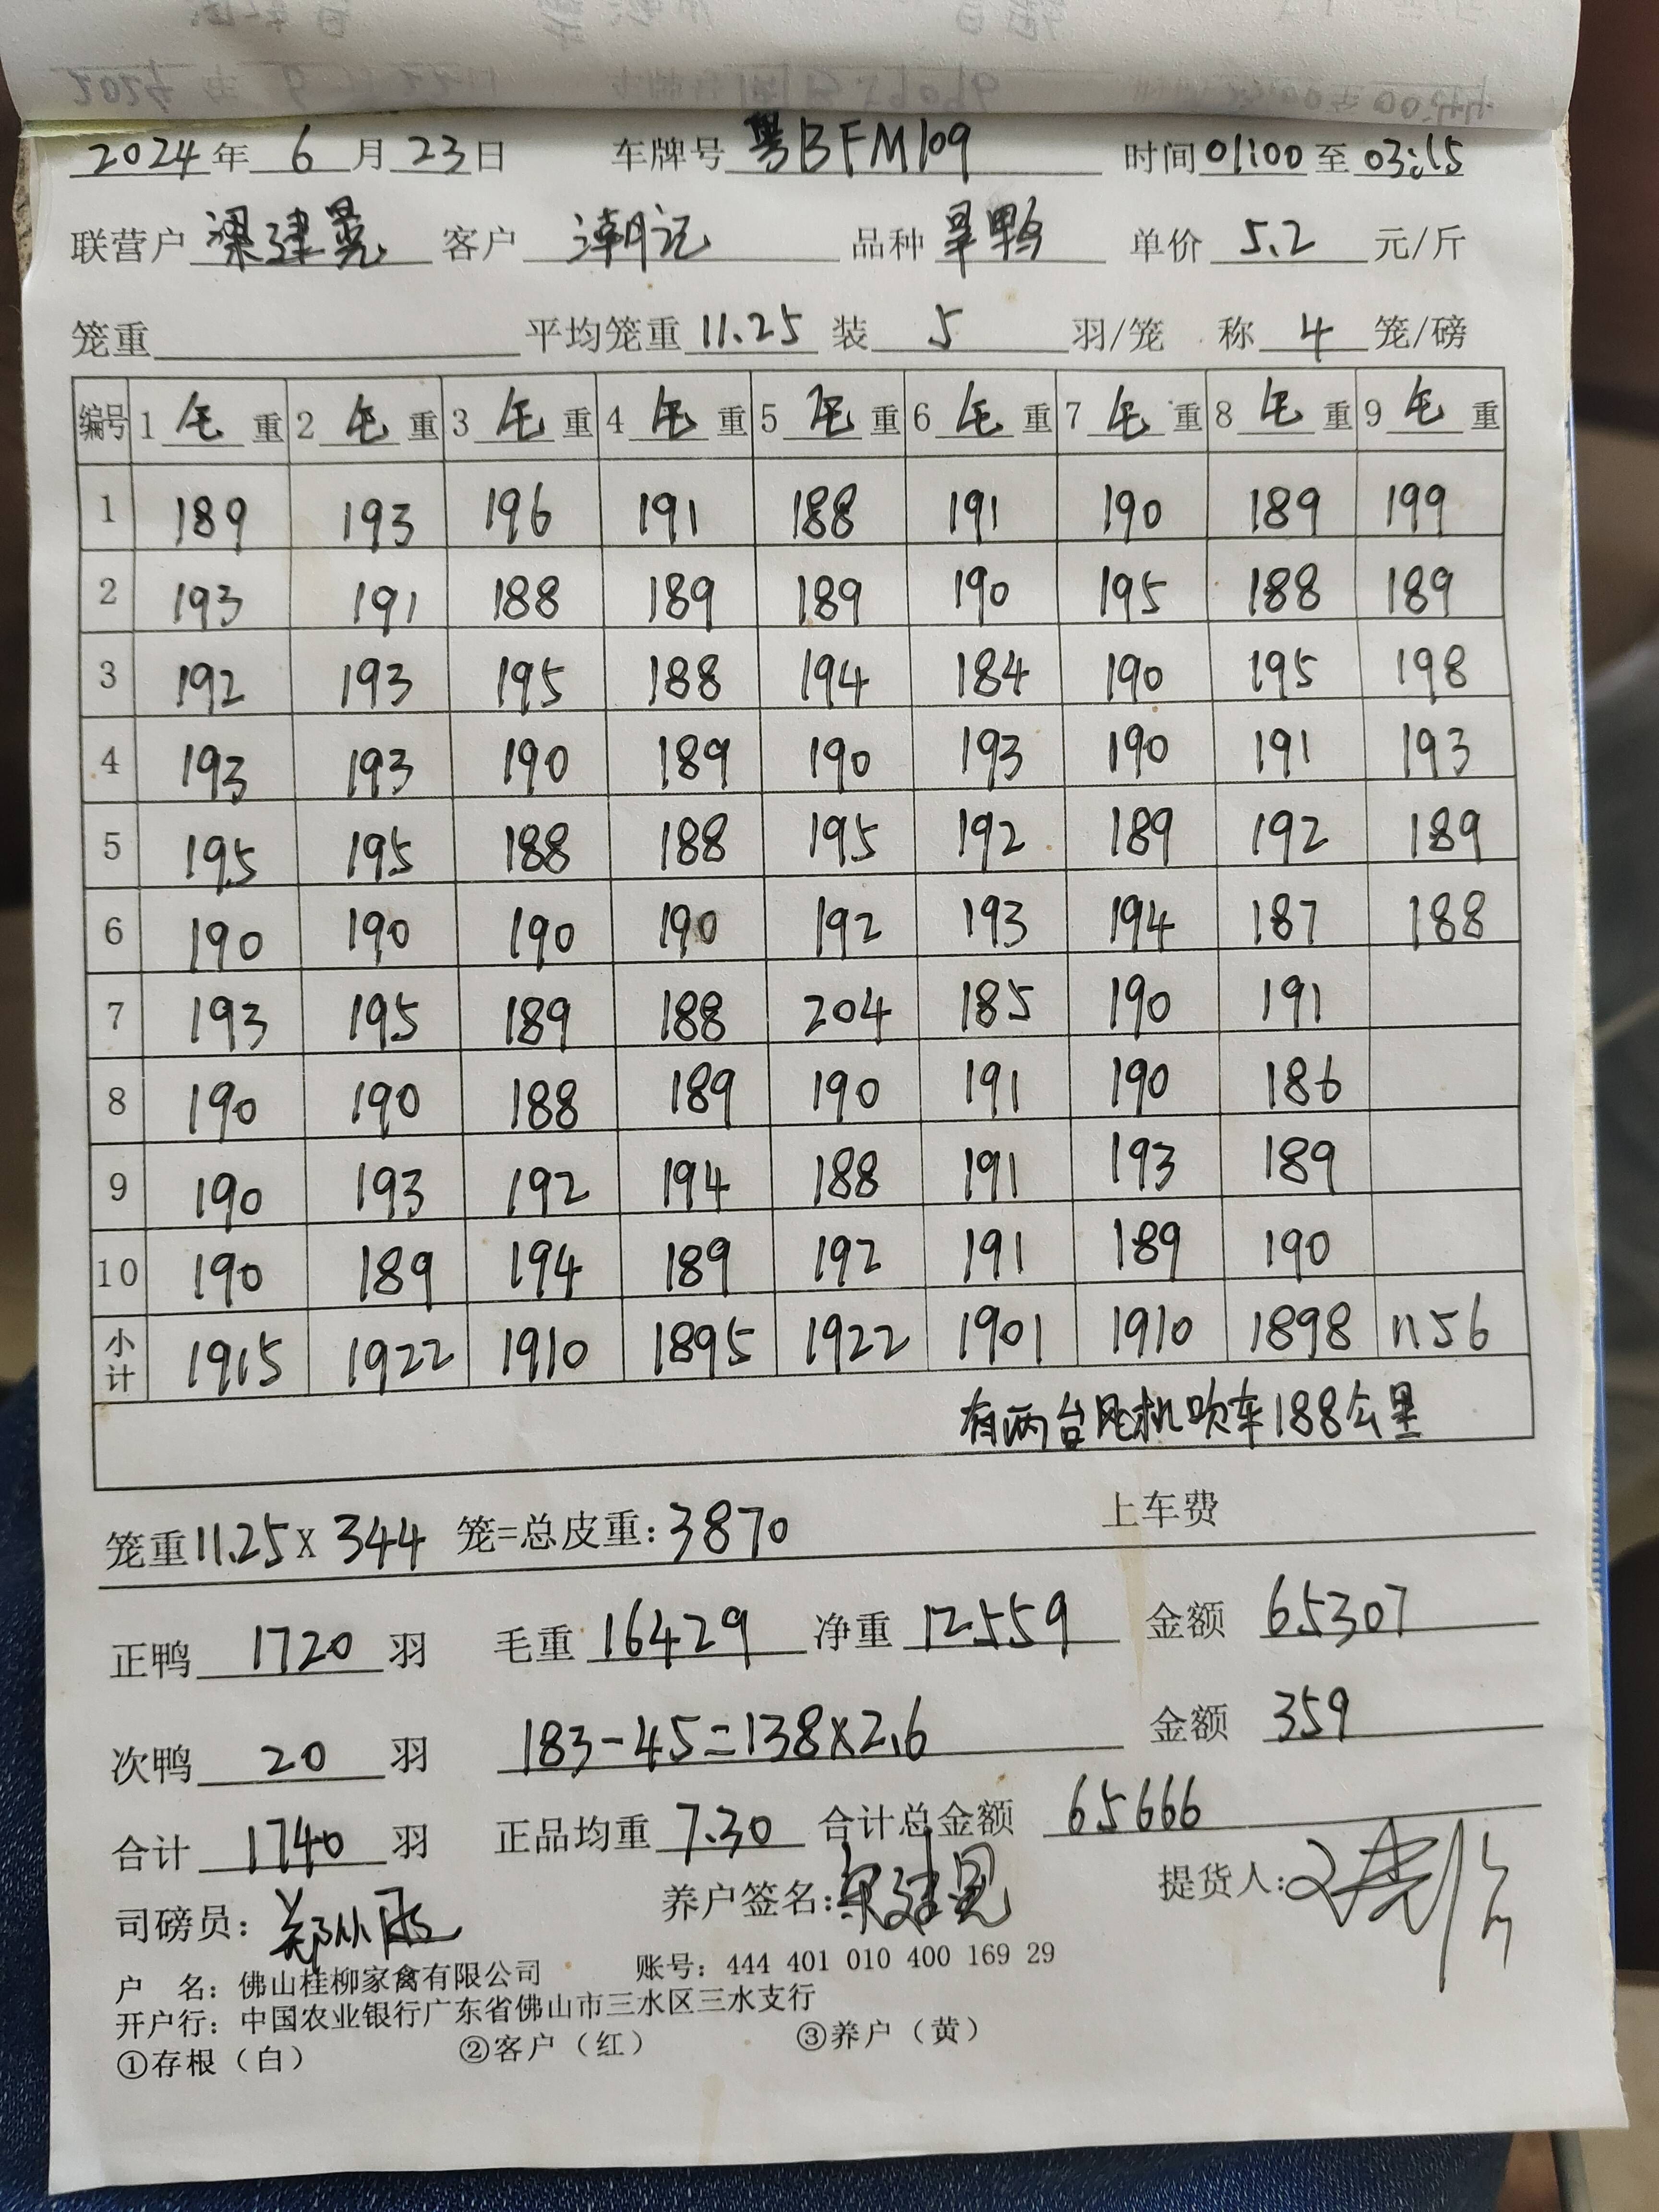 2024年 6月23日 车牌号 粤BFM109 时间 01:00 至 03:15
联营户 梁建晃 客户 潮记 品种 旱鸭 单价 5.2 元/斤
笼重 平均笼重 11.25 装 5 羽/笼 称 4 笼/磅
编号 1 毛 重 2 毛 重 3 毛 重 4 毛 重 5 毛 重 6 毛 重 7 毛 重 8 毛 重 9 毛 重
1 189 193 196 191 188 191 190 189 199
2 193 191 188 189 189 190 195 188 189
3 192 193 195 188 194 184 190 195 198
4 193 193 190 189 190 193 190 191 193
5 195 195 188 188 195 192 189 192 189
6 190 190 190 190 192 193 194 187 188
7 193 195 189 188 204 185 190 191
8 190 190 188 189 190 191 190 186
9 190 193 192 194 188 191 193 189
10 190 189 194 189 192 191 189 190
小计 1915 1922 1910 1895 1922 1901 1910 1898 1156
有两台风机吹车188公里
笼重11.25X 344 笼=总皮重:3870 上车费
正鸭 1720 羽 毛重 16429 净重 12559 金额 65307
次鸭 20 羽 183-45=138×2.6 金额 359
合计 1740 羽 正品均重 7.30 合计总金额 65666
司磅员: 养户签名: 提货人:
户 名: 佛山桂柳家禽有限公司 账号: 444 401 010 400 169 29
开户行: 中国农业银行广东省佛山市三水区三水支行
①存根（白） ②客户（红） ③养户（黄）